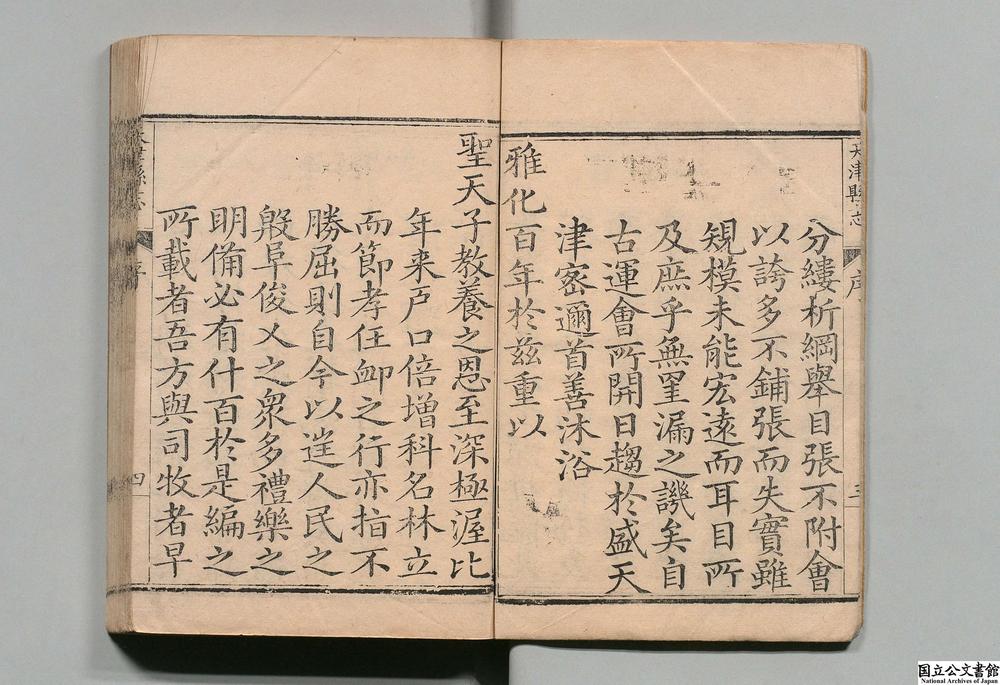 天津縣志
序
三
分縷析綱舉目張不附會
以誇多不鋪張而失實雖
規模未能宏遠而耳目所
及庶乎無罣漏之譏矣自
古運會所開日趨於盛天
津密邇首善沐浴
雅化百年於茲重以
聖天子教養之恩至深極渥比
年来戶口倍增科名林立
而節孝任卹之行亦指不
勝屈則自今以往人民之
殷阜俊乂之衆多禮樂之
明備必有什百於是編之
所載者吾方與司牧者早
天津縣志
序
四
国立公文書館
National Archives of Japan